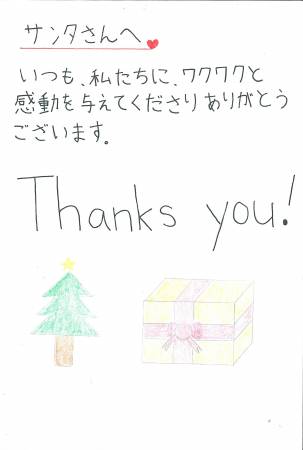 サンタさんへ
いつも、私たちに、ワクワクと
感動を与えてくださりありがとう
ございます。
Thanks you!